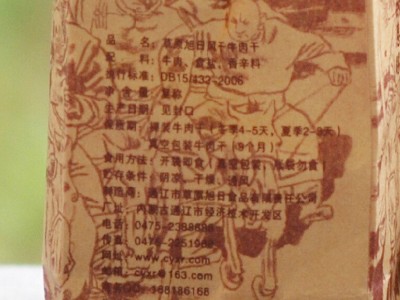 品 名: 草原旭日风干牛肉干
配 料: 牛肉、食盐、香辛料
执行标准: DB15/432-2006
净 含 量: 复称
生产日期: 见封口
保质期: 裸装牛肉干(冬季4-5天, 夏季2-3天)
真空包装牛肉干(9个月)
食用方法: 开袋即食(真空包装, 胀袋勿食)
贮存条件: 阴凉、干燥、通风
制造商: 通辽市草原旭日食品有限责任公司
厂址: 内蒙古通辽市经济技术开发区
电话: 0475-2388888
传真: 0475-2251968
网址: www.cyxr.com
邮箱: cyxr@163.com
商务QQ: 188186168